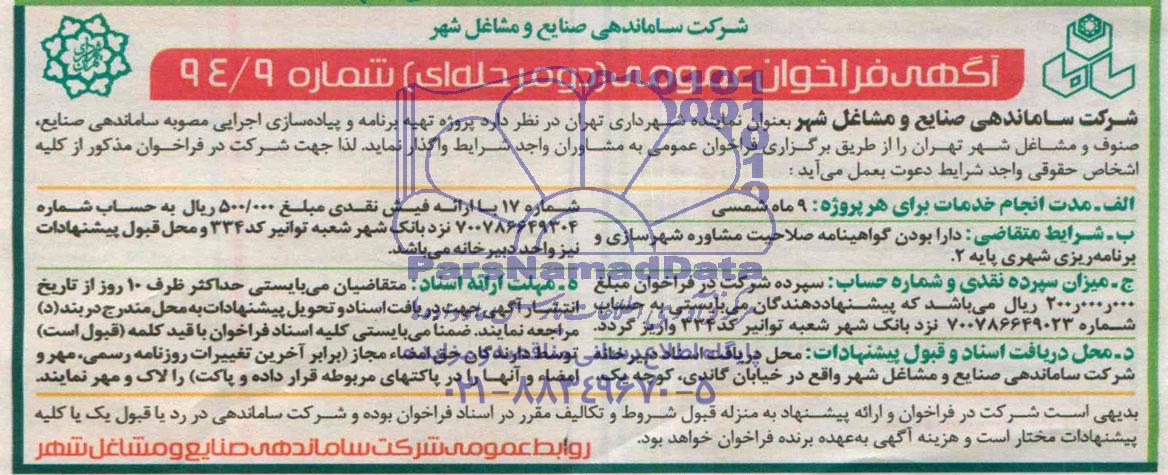 شرکت ساماندهی صنایع و مشاغل شهر
آگهی فراخوان عمومی (دو مرحله‌ای) شماره ۹۴/۹
شرکت ساماندهی صنایع و مشاغل شهر بعنوان نماینده شهرداری تهران در نظر دارد پروژه تهیه برنامه و پیاده‌سازی اجرایی مصوبه ساماندهی صنایع،
صنوف و مشاغل شهر تهران را از طریق برگزاری فراخوان عمومی به مشاوران واجد شرایط واگذار نماید. لذا جهت شرکت در فراخوان مذکور از کلیه
اشخاص حقوقی واجد شرایط دعوت بعمل می‌آید :
الف ـ مدت انجام خدمات برای هر پروژه : ۹ ماه شمسی
ب ـ شرایط متقاضی : دارا بودن گواهینامه صلاحیت مشاوره شهرسازی و
برنامه‌ریزی شهری پایه ۲.
ج ـ میزان سپرده نقدی و شماره حساب : سپرده شرکت در فراخوان مبلغ
۲۰۰ر۰۰۰ر۰۰۰ ریال می‌باشد که پیشنهاددهندگان می‌بایستی به حساب
شماره ۷۰۰۷۸۶۶۴۹۰۲۳ نزد بانک شهر شعبه توانیر کد ۳۳۴ واریز گردد.
د ـ محل دریافت اسناد و قبول پیشنهادات : محل دریافت اسناد دبیرخانه
شرکت ساماندهی صنایع و مشاغل شهر واقع در خیابان گاندی، کوچه یکم،
شماره ۱۷ با ارائه فیش نقدی مبلغ ۵۰۰/۰۰۰ ریال به حساب شماره
۷۰۰۷۸۶۶۴۹۳۰۴ نزد بانک شهر شعبه توانیر کد ۳۳۴ و محل قبول پیشنهادات
نیز واحد دبیرخانه می‌باشد.
ه ـ مهلت ارائه اسناد : متقاضیان می‌بایستی حداکثر ظرف ۱۰ روز از تاریخ
انتشار آگهی جهت دریافت اسناد و تحویل پیشنهادات به محل مندرج در بند (د)
مراجعه نمایند. ضمنا می‌بایستی کلیه اسناد فراخوان با قید کلمه (قبول است)
توسط دارندگان حق امضاء مجاز (برابر آخرین تغییرات روزنامه رسمی، مهر و
امضاء و آنها را در پاکتهای مربوطه قرار داده و پاکت) را لاک و مهر نمایند.
بدیهی است شرکت در فراخوان و ارائه پیشنهاد به منزله قبول شروط و تکالیف مقرر در اسناد فراخوان بوده و شرکت ساماندهی در رد یا قبول یک یا کلیه
پیشنهادات مختار است و هزینه آگهی به‌عهده برنده فراخوان خواهد بود.
روابط عمومی شرکت ساماندهی صنایع و مشاغل شهر
ParsNamadData
پایگاه اطلاع رسانی مناقصه و مزایده
۰۲۱-۸۸۳۴۹۶۷۰-۵